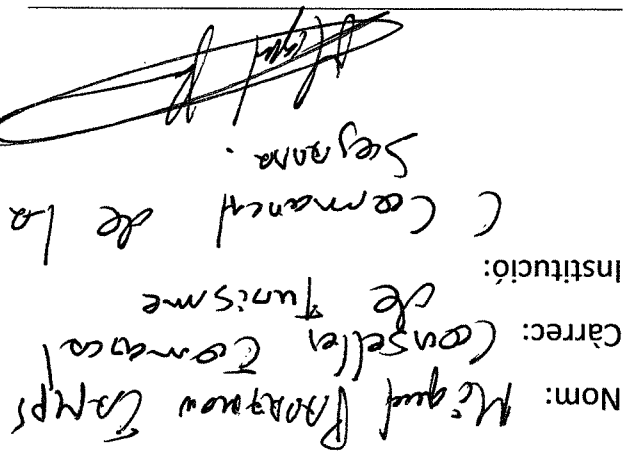 Nom: Miquel Camps
Càrrec: Conseller Comarcal
de Turisme
Institució:
C Comarcal de La
Segarra.